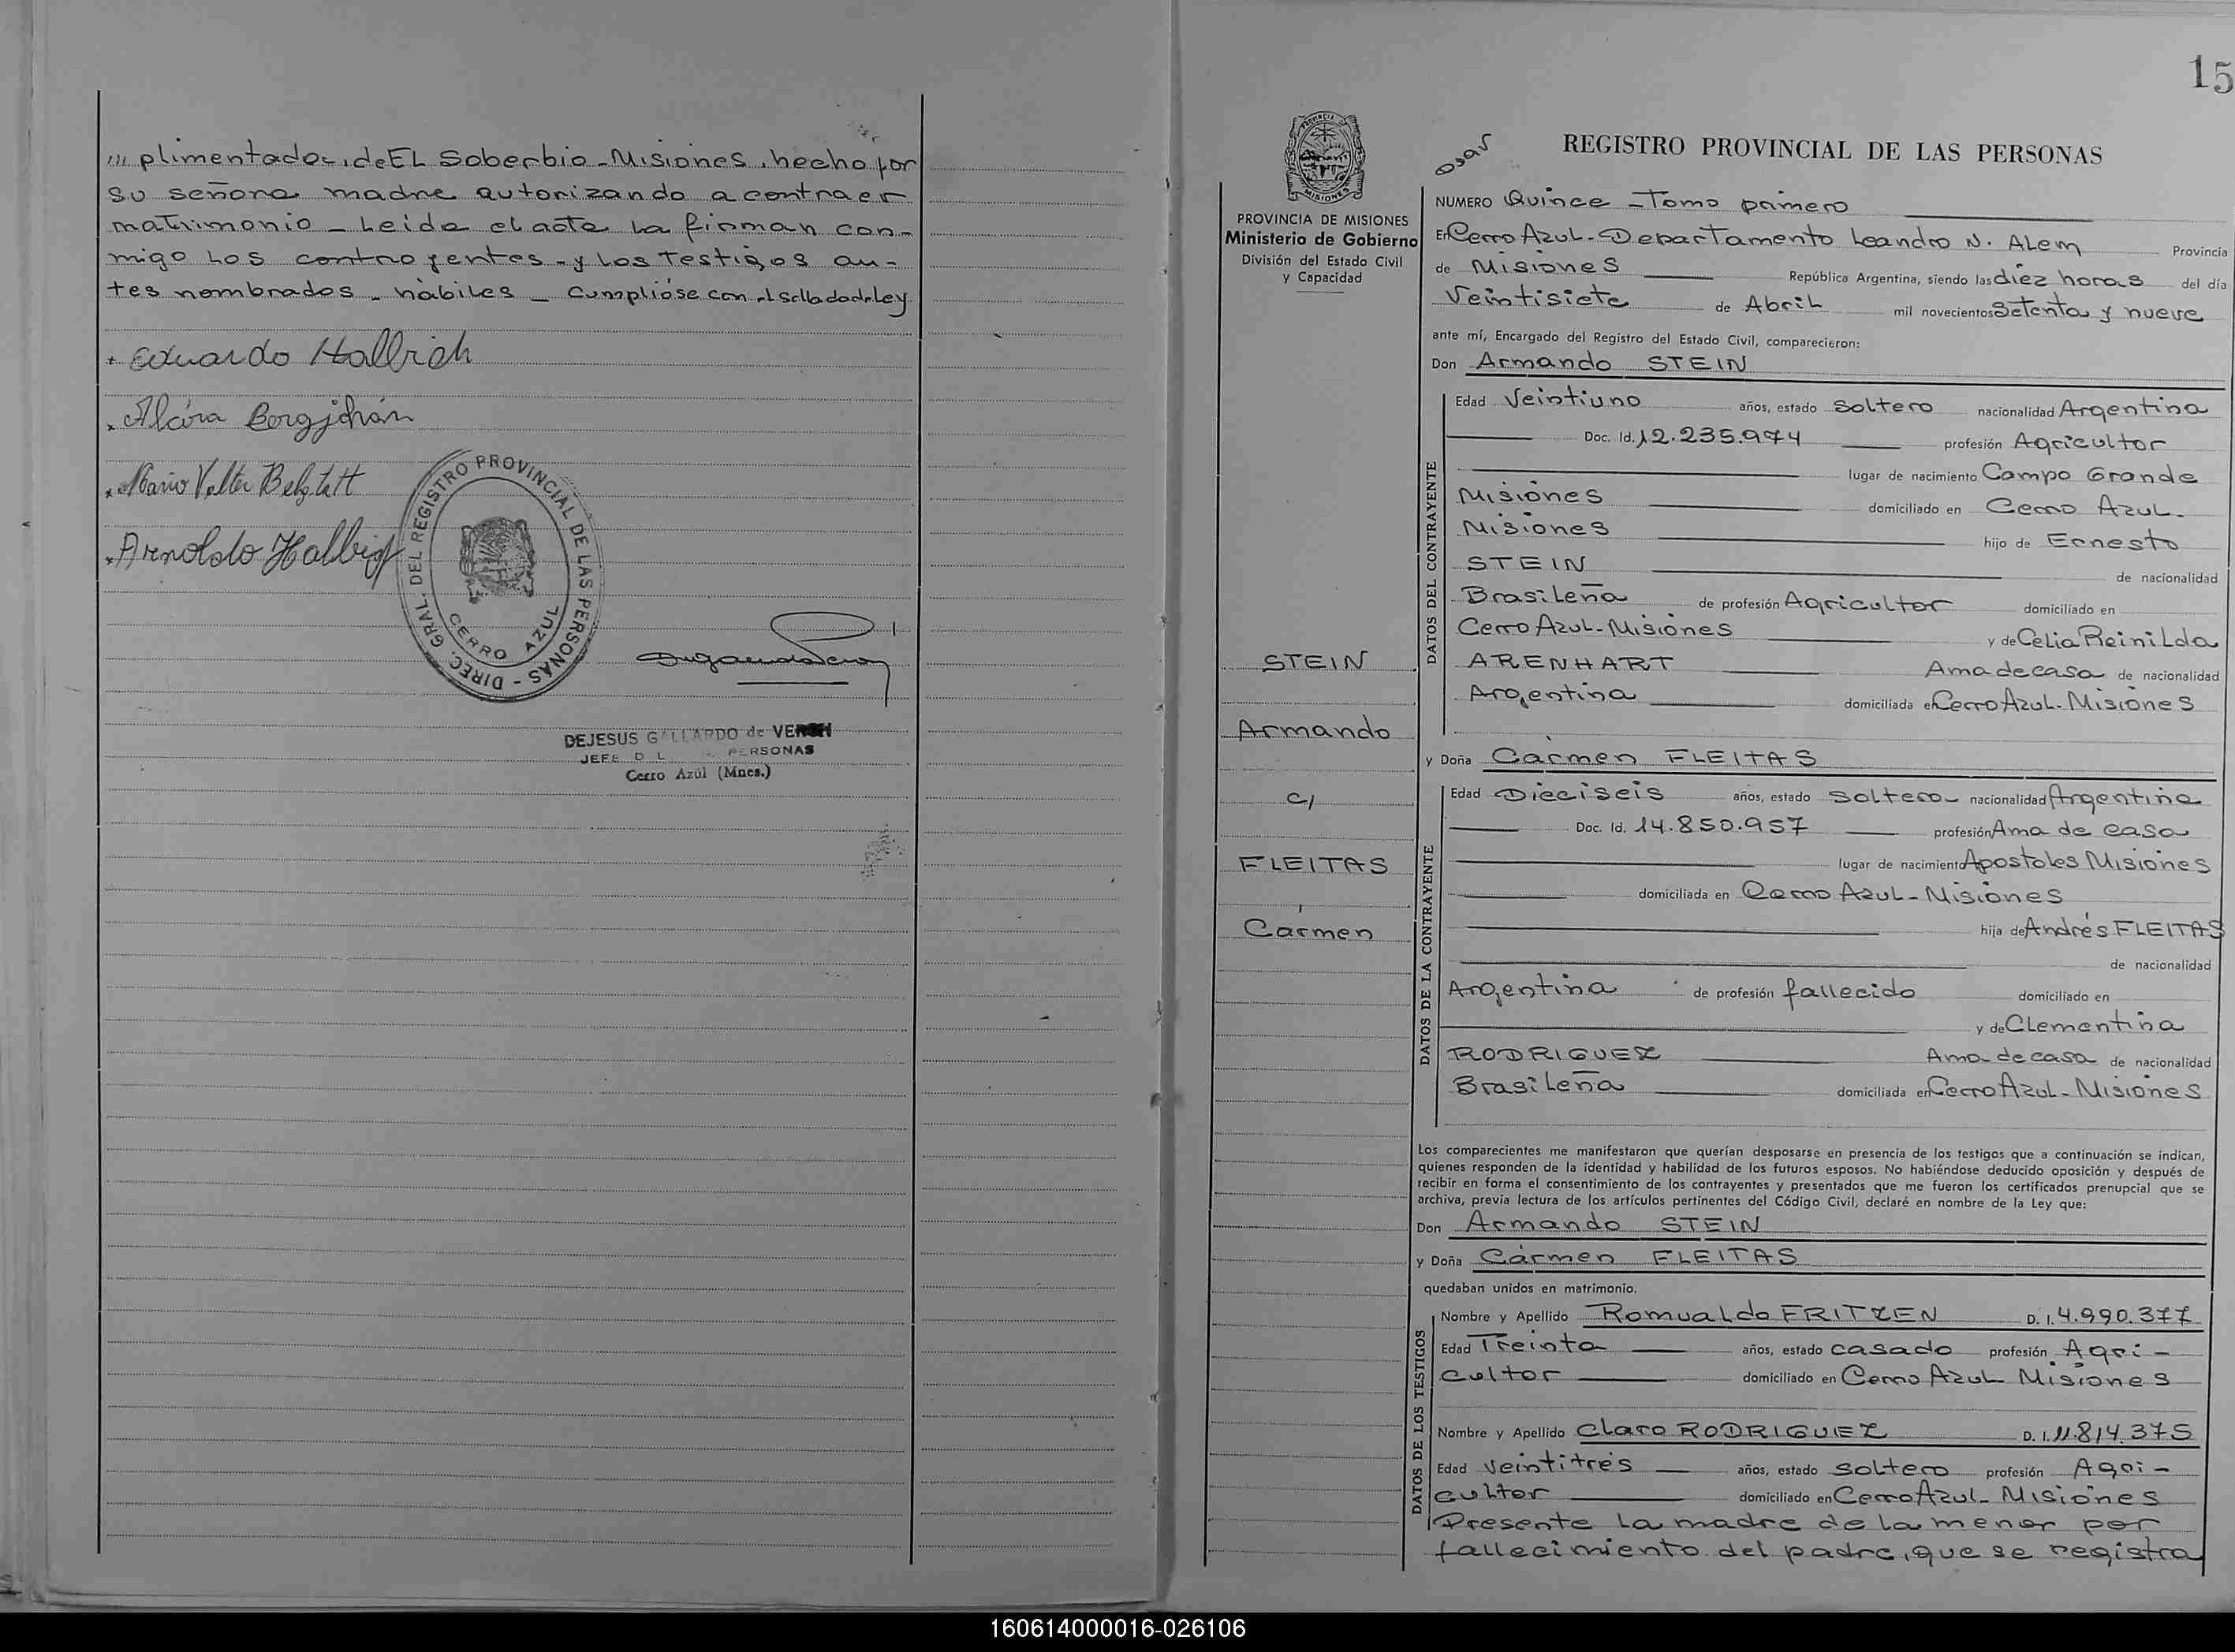 /// plimentador, de EL Soberbio - Misiones, hecho por
su señora madre autorizando a contraer
matrimonio - Leída el acta la firman con-
migo los contrayentes y los testigos an-
tes nombrados - hábiles - Cumplióse con el sellado de Ley
Eduardo Hallrich
Mario Valter
Arnoldo Halbig
DIREC. GRAL. DEL REGISTRO PROVINCIAL DE LAS PERSONAS -
CERRO AZUL
DEJESUS GALLARDO de VERON
JEFE D L PERSONAS
Cerro Azúl (Mnes.)
15
PROVINCIA DE MISIONES
Ministerio de Gobierno
División del Estado Civil
y Capacidad
STEIN
Armando
c/
FLEITAS
Cármen
REGISTRO PROVINCIAL DE LAS PERSONAS
NUMERO Quince - Tomo primero
En Cerro Azul - Departamento Leandro N. Alem Provincia
de Misiones República Argentina, siendo las diez horas del día
Veintisiete de Abril mil novecientos Setenta y nueve
ante mí, Encargado del Registro del Estado Civil, comparecieron:
Don Armando STEIN
DATOS DEL CONTRAYENTE
Edad Veintiuno años, estado Soltero nacionalidad Argentina
Doc. Id. 12.235.974 profesión Agricultor
lugar de nacimiento Campo Grande
Misiones domiciliado en Cerro Azul.
Misiones hijo de Ernesto
STEIN de nacionalidad
Brasileña de profesión Agricultor domiciliado en
Cerro Azul - Misiones y de Celia Reinilda
ARENHART Ama de casa de nacionalidad
Argentina domiciliada en Cerro Azul - Misiones
y Doña Cármen FLEITAS
DATOS DE LA CONTRAYENTE
Edad Dieciseis años, estado Soltera nacionalidad Argentina
Doc. Id. 14.850.957 profesión Ama de casa
lugar de nacimiento Apostoles Misiones
domiciliada en Cerro Azul - Misiones
hija de Andrés FLEITAS
de nacionalidad
Argentina de profesión fallecido domiciliado en
y de Clementina
RODRIGUEZ Ama de casa de nacionalidad
Brasileña domiciliada en Cerro Azul - Misiones
Los comparecientes me manifestaron que querían desposarse en presencia de los testigos que a continuación se indican,
quienes responden de la identidad y habilidad de los futuros esposos. No habiéndose deducido oposición y después de
recibir en forma el consentimiento de los contrayentes y presentados que me fueron los certificados prenupcial que se
archiva, previa lectura de los artículos pertinentes del Código Civil, declaré en nombre de la Ley que:
Don Armando STEIN
y Doña Cármen FLEITAS
quedaban unidos en matrimonio.
DATOS DE LOS TESTIGOS
Nombre y Apellido Romualdo FRITZEN D. I. 4.990.377
Edad Treinta años, estado casado profesión Agri-
cultor domiciliado en Cerro Azul Misiones
Nombre y Apellido Claro RODRIGUEZ D. I. 11.814.375
Edad Veintitrés años, estado Soltero profesión Agri-
cultor domiciliado en Cerro Azul - Misiones
Presente la madre de la menor por
fallecimiento del padre, que se registra
160614000016-026106